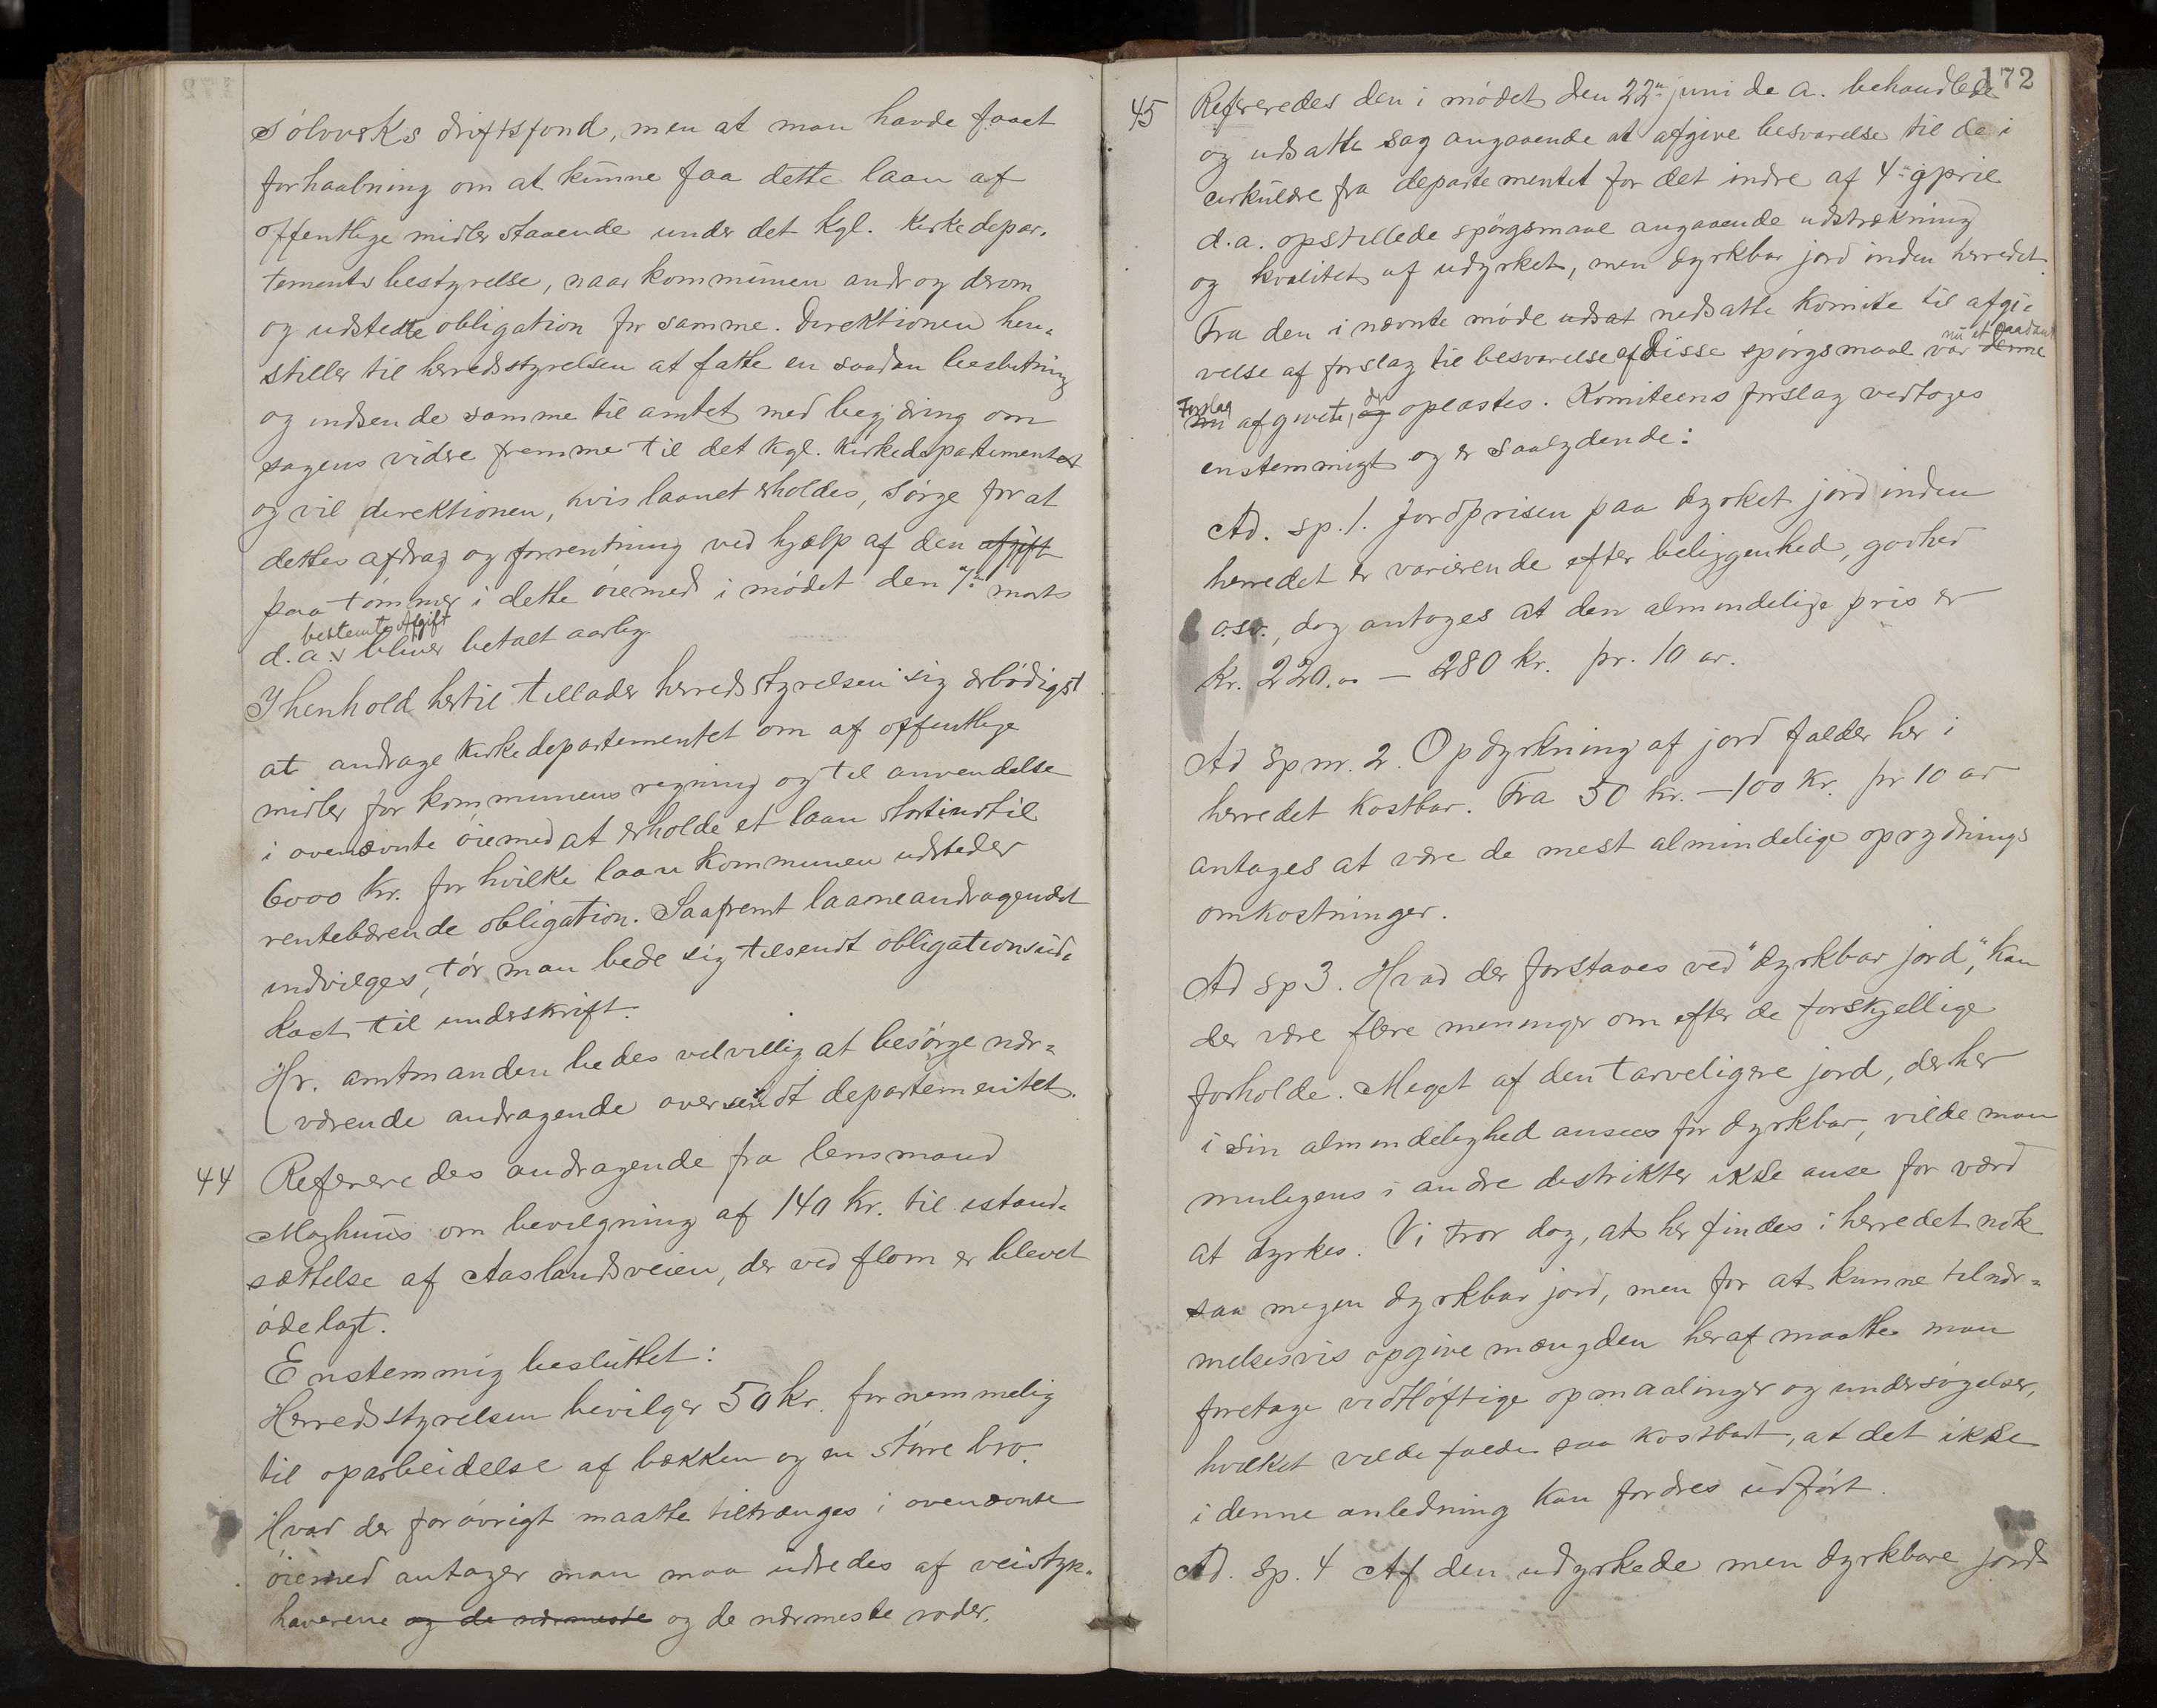 Sölvverks driftsfond, men at man havde faaet
forhaabning om at kunne faa dette laan af
offentlige midler staaende under det kgl. kirkedepar-
tements bestyrelse, naar kommunen androg derom
og udstedte obligation for samme. Direktionen hen-
stiller til herredsstyrelsen at fatte en saadan beslutning
og indsende samme til amtet med begjæring om
sagens videre fremme til det kgl. kirkedepartementet
og vil direktionen, hvis laanet erholdes, sörge for at
dettes afdrag og forrentning ved hjælp af den afgift
paa tömmer i dette öiemed i mödet den 7de marts
bestemte Afgift
d.a. bliver betalt aarlig.
I henhold hertil tillader herredsstyrelsen sig ærbödigst
at andrage kirkedepartementet om af offentlige
midler for kommunens regning og til anvendelse
i ovennævnte öiemed at erholde et laan stort indtil
6000 kr. for hvilke laan kommunen udsteder
rentebærende obligation. Saafremt laaneandragendet
indvilges, tör man bede sig tilsendt obligationsud-
kast til underskrift.
Hr. amtmanden bedes velvillig at besörge nær-
værende andragende oversendt departementet.
44 Refereredes andragende fra lensmand
Moghuus om bevilgning af 140 kr. til istand-
sættelse af Aaslandsveien, der ved flom er blevet
ödelagt.
Enstemmig besluttet:
Herredsstyrelsen bevilger 50 kr. fornemmelig
til oparbeidelse af bækken og en större bro.
Hvad der forövrigt maatte tiltrænges i ovennævnte
öiemed antager man maa udredes af veistyk-
haverene og de nærmeste og de nærmeste roder.
172
45 Refereredes den i mödet den 22de juni d. a. behandlede
og udsatte sag angaaende at afgive besvarelse til de i
cirkulære fra departementet for det indre af 4de april
d.a. opstillede spörgsmaal angaaende udstrækning
og kvalitet af udyrket, men dyrkbar jord inden herredet.
Fra den i nævnte möde udsat nedsatte komite til afgi-
velse af forslag til besvarelse af disse spörgsmaal var denne
nu et saadant
Forslag
nu afgivet, og oplæstes. Komiteens forslag vedtoges
der
enstemmigt og er saalydende:
Ad. sp. 1. Jordprisen paa dyrket jord inden
herredet er varierende efter beliggenhed, godhed
o.sv., dog antages at den almindelige pris er
Kr. 220.00 — 280 kr. pr. 10 ar.
Ad Spm. 2. Opdyrkning af jord falder her i
herredet kostbar. Fra 50 kr. — 100 kr. pr 10 ar
antages at være de mest almindelige oprydnings
omkostninger.
Ad sp 3. Hvad der forstaaes ved "dyrkbar jord", kan
der være flere meninger om efter de forskjellige
forholde. Meget af den tarveligere jord, der her
i sin almindelighed ansees for dyrkbar, vilde man
muligens i andre distrikter ikke anse for værd
at dyrkes. Vi tror dog, at her findes i herredet nok
saa megen dyrkbar jord, men for at kunne tilnær-
melsesvis opgive mængden heraf maatte man
foretage vidtlöftige opmaalinger og undersögelser,
hvilket vilde falde saa kostbart, at det ikke
i denne anledning kan fordres udfört.
Ad. Sp. 4 Af den udyrkede men dyrkbare jord